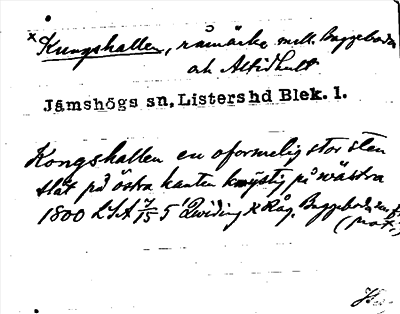 × Kungshallen, råmärke mell. Baggeboda
och Altidhult
Jämshögs sn, Listers hd Blek. l.
Kongshallen en oformelig stor sten
slät på östra kanten på wästra
1800 LSA 7/15 5' Qwiding × Råg. Baggeboda